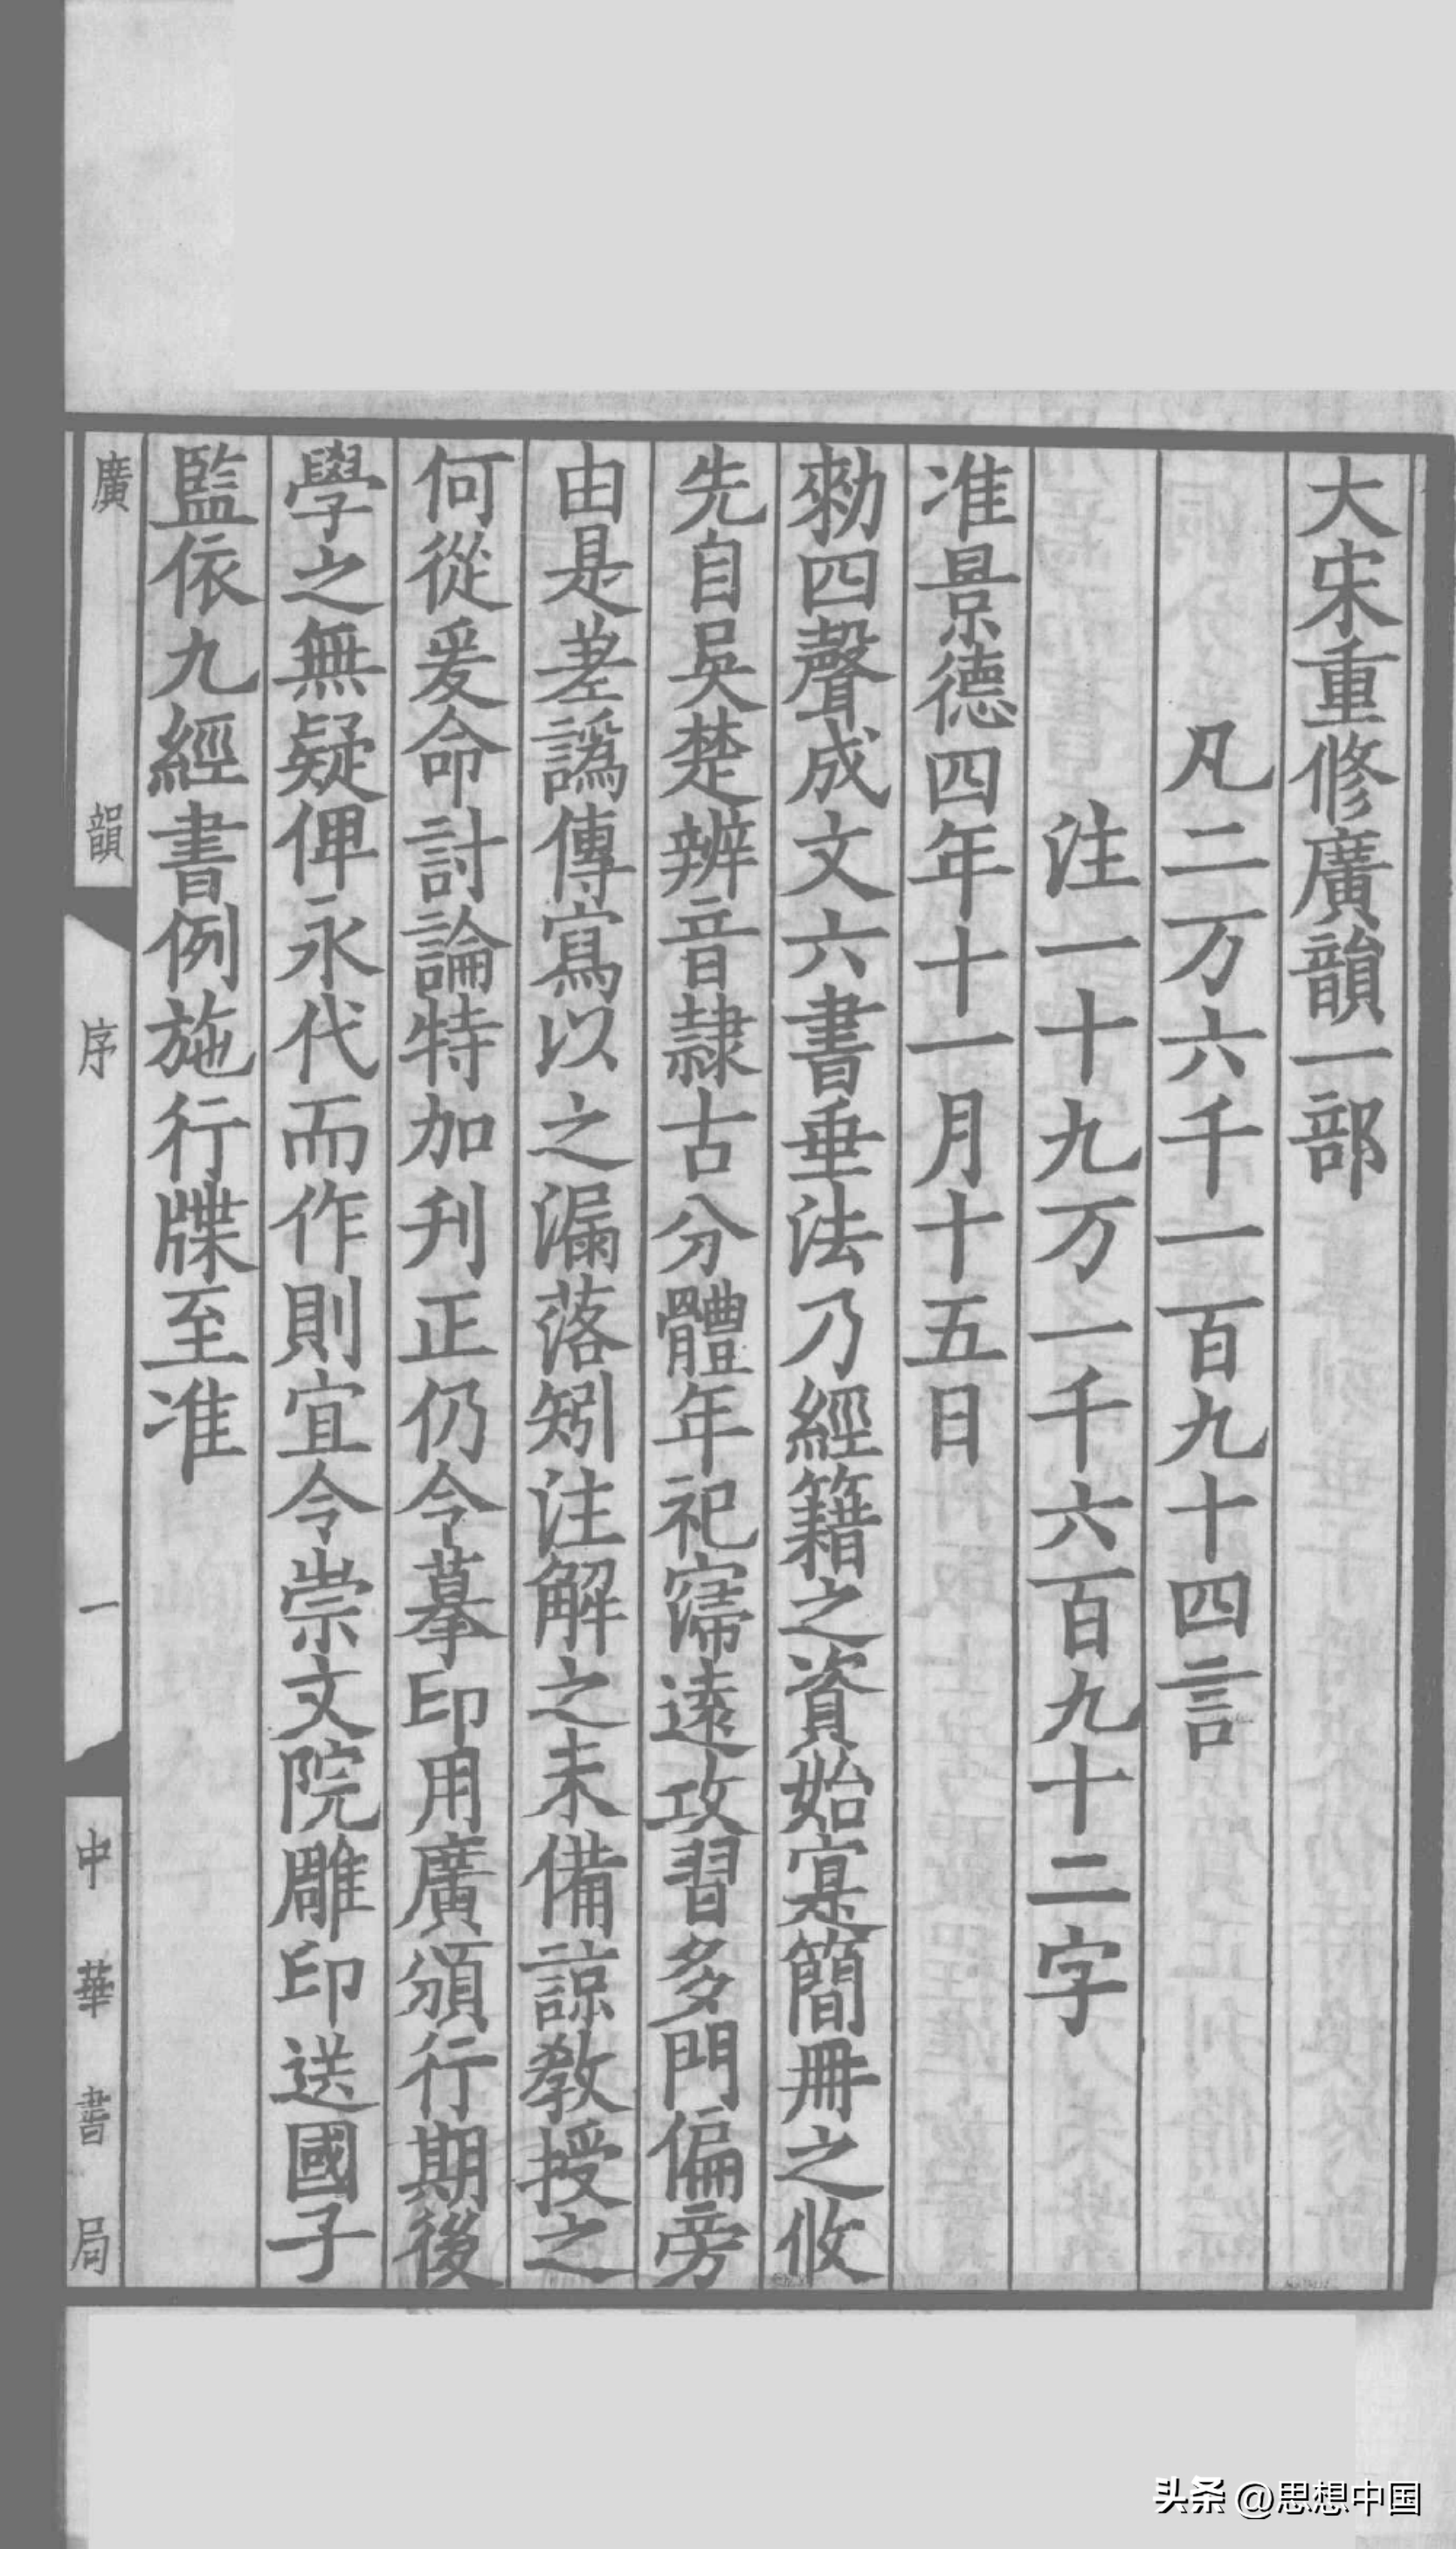 大宋重修廣韻一部
凡二万六千一百九十四言
注一十九万一千六百九十二字
准景德四年十一月十五日
勑四聲成文六書垂法乃經籍之資始寔簡冊之攸
先自吳楚辨音隷古分體年祀寖遠攻習多門偏旁
由是差譌傳寫以之漏落矧注解之未備諒教授之
何從爰命討論特加刋正仍令摹印用廣頒行期後
學之無疑俾永代而作則宜令崇文院雕印送國子
監依九經書例施行牒至准
廣韻 序 一 中華書局
头条 @思想中国